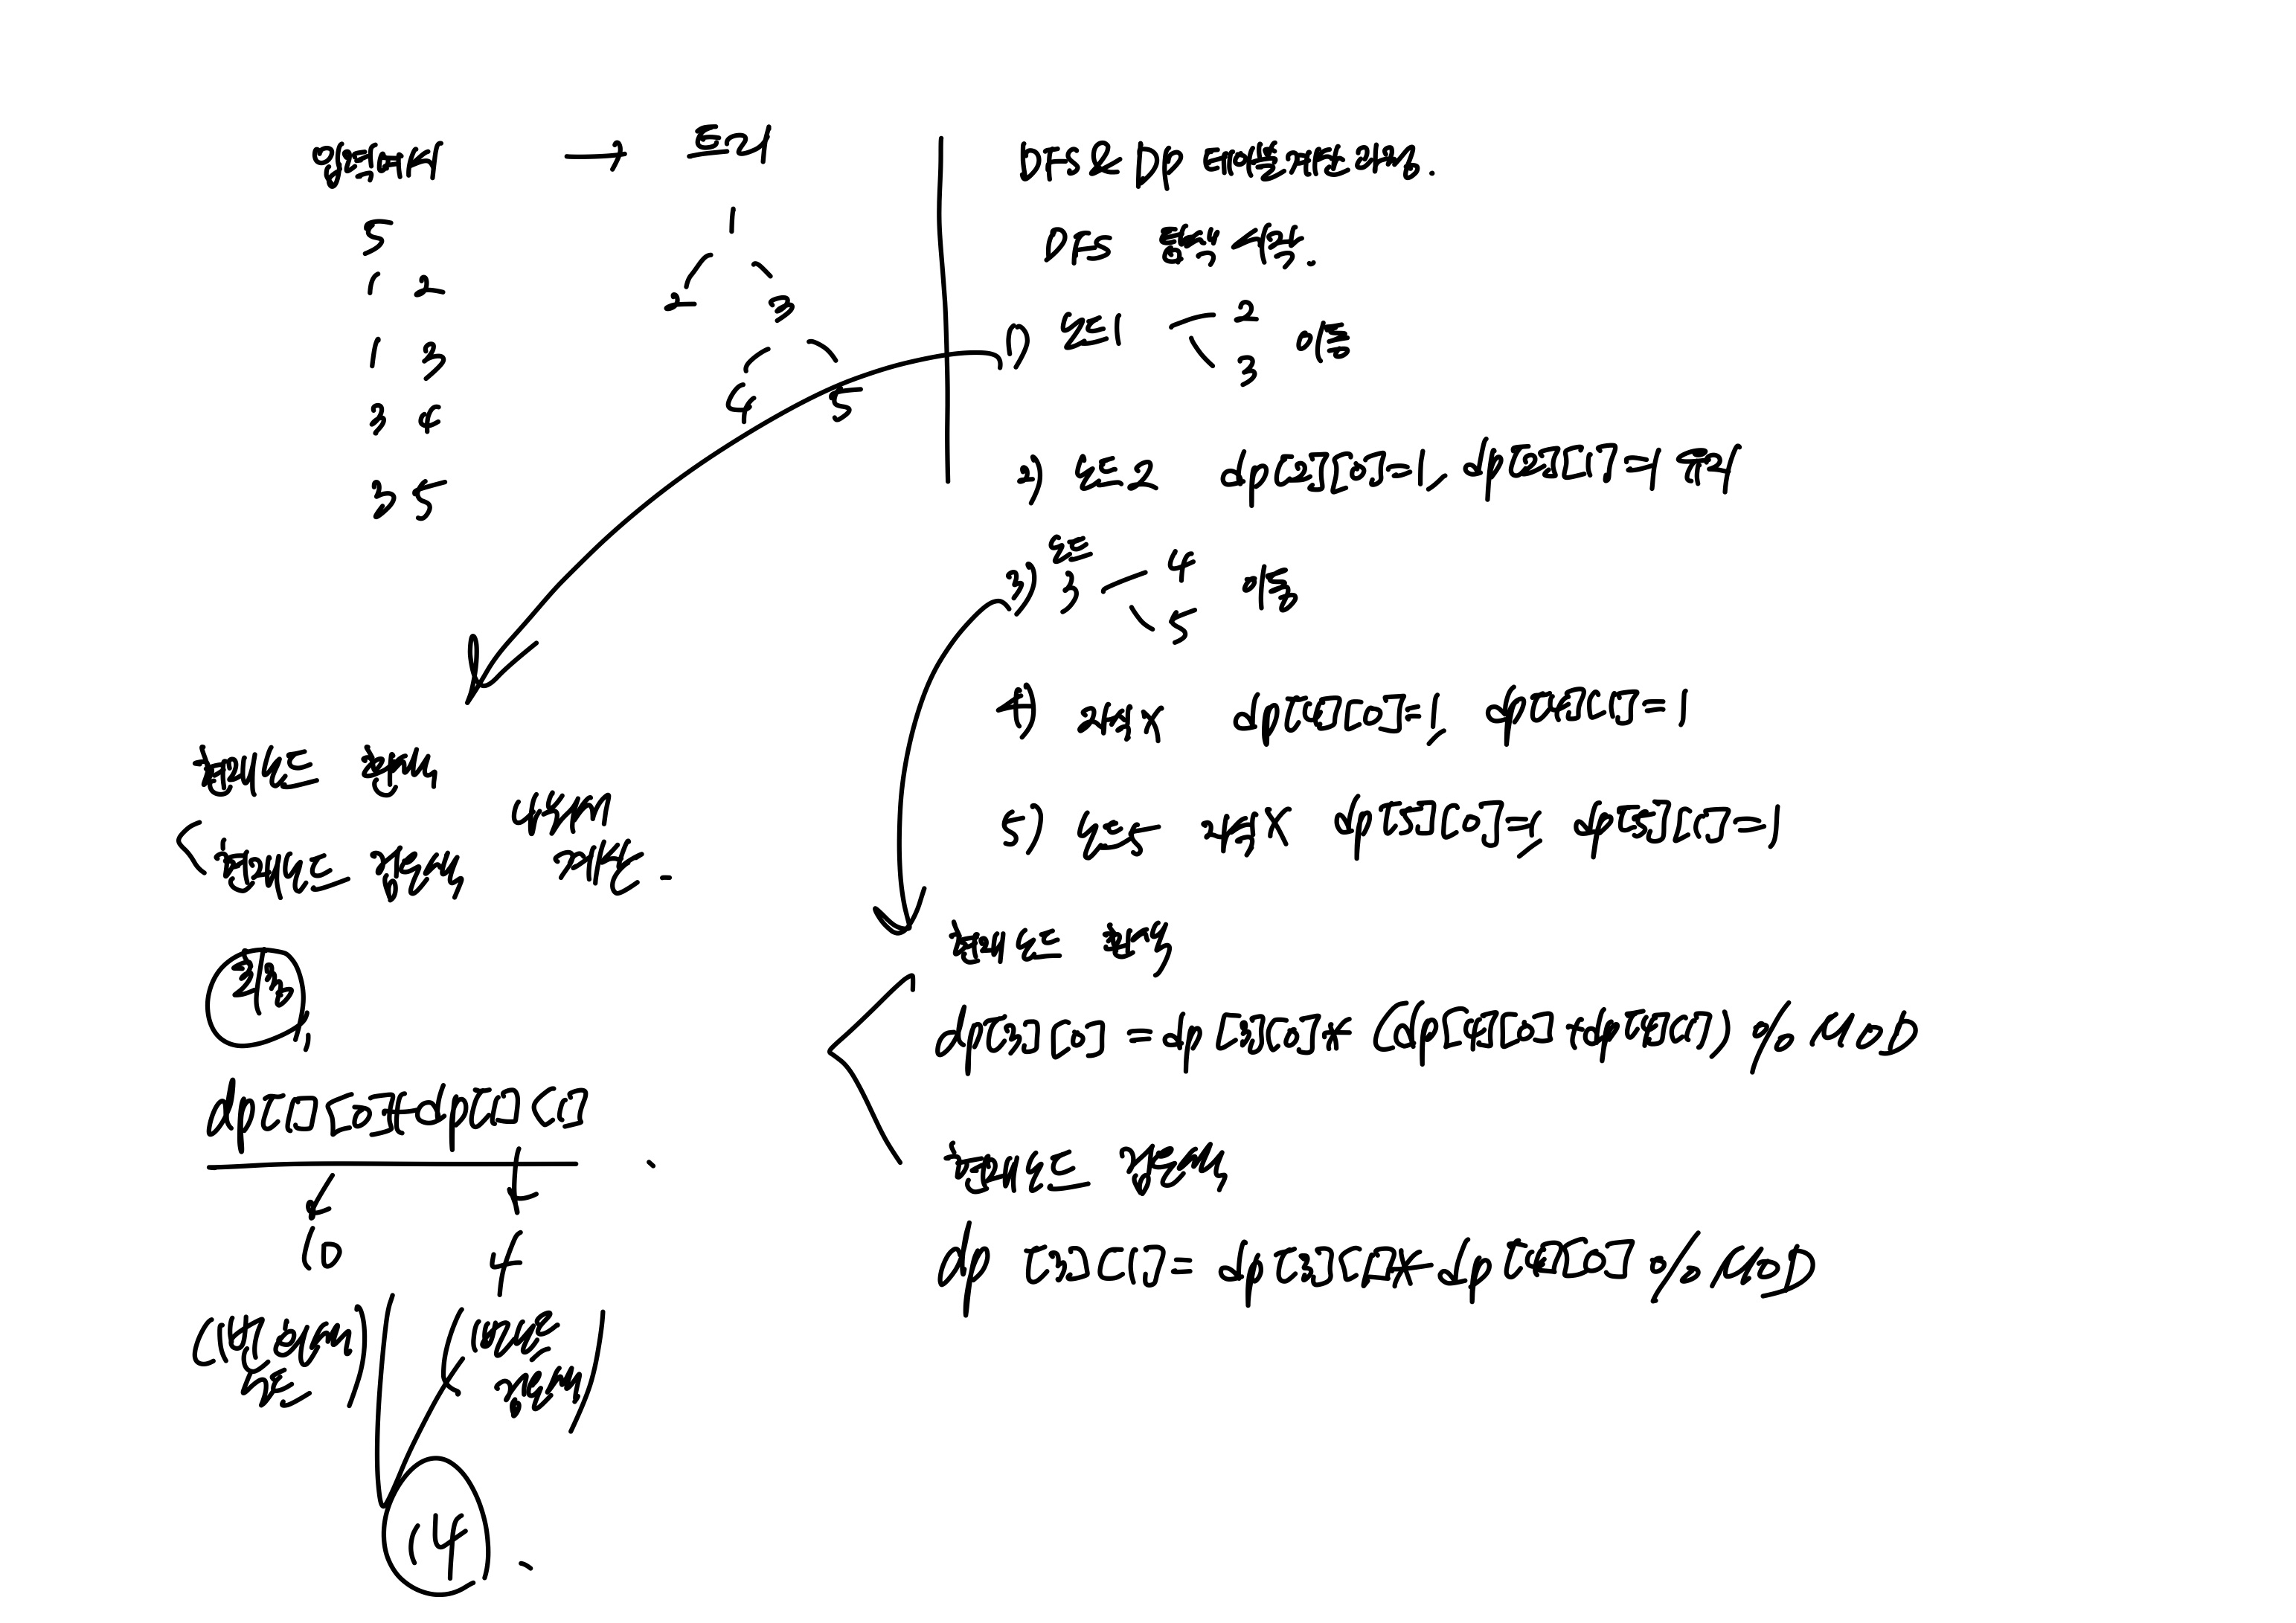 → 트리
5
1 2
1 3
3 4
3 5
1
2 3
4 5
DFS & DP
DFS 탐색 시작.
1) 노드 1 2 3 이동
2) 노드 2 dp[2][0]=1, dp[2][1]=1 초기화
3) 노드 3 4 5 이동
4) 자식 X dp[4][0]=1, dp[4][1]=1
5) 노드 5 자식 X dp[5][0]=1, dp[5][1]=1
현재 노드 흰색
dp[3][0] = dp[3][0] * (dp[4][0] + dp[4][1]) % MOD
현재 노드 검은색
dp [3][1] = dp[3][1] * dp[4][0] % MOD
현재 노드 흰색
현재 노드 검은색
최종,
dp[1][0] + dp[1][1]
10 4
14.